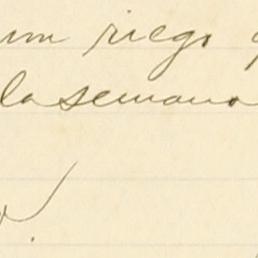 um riego
la semana